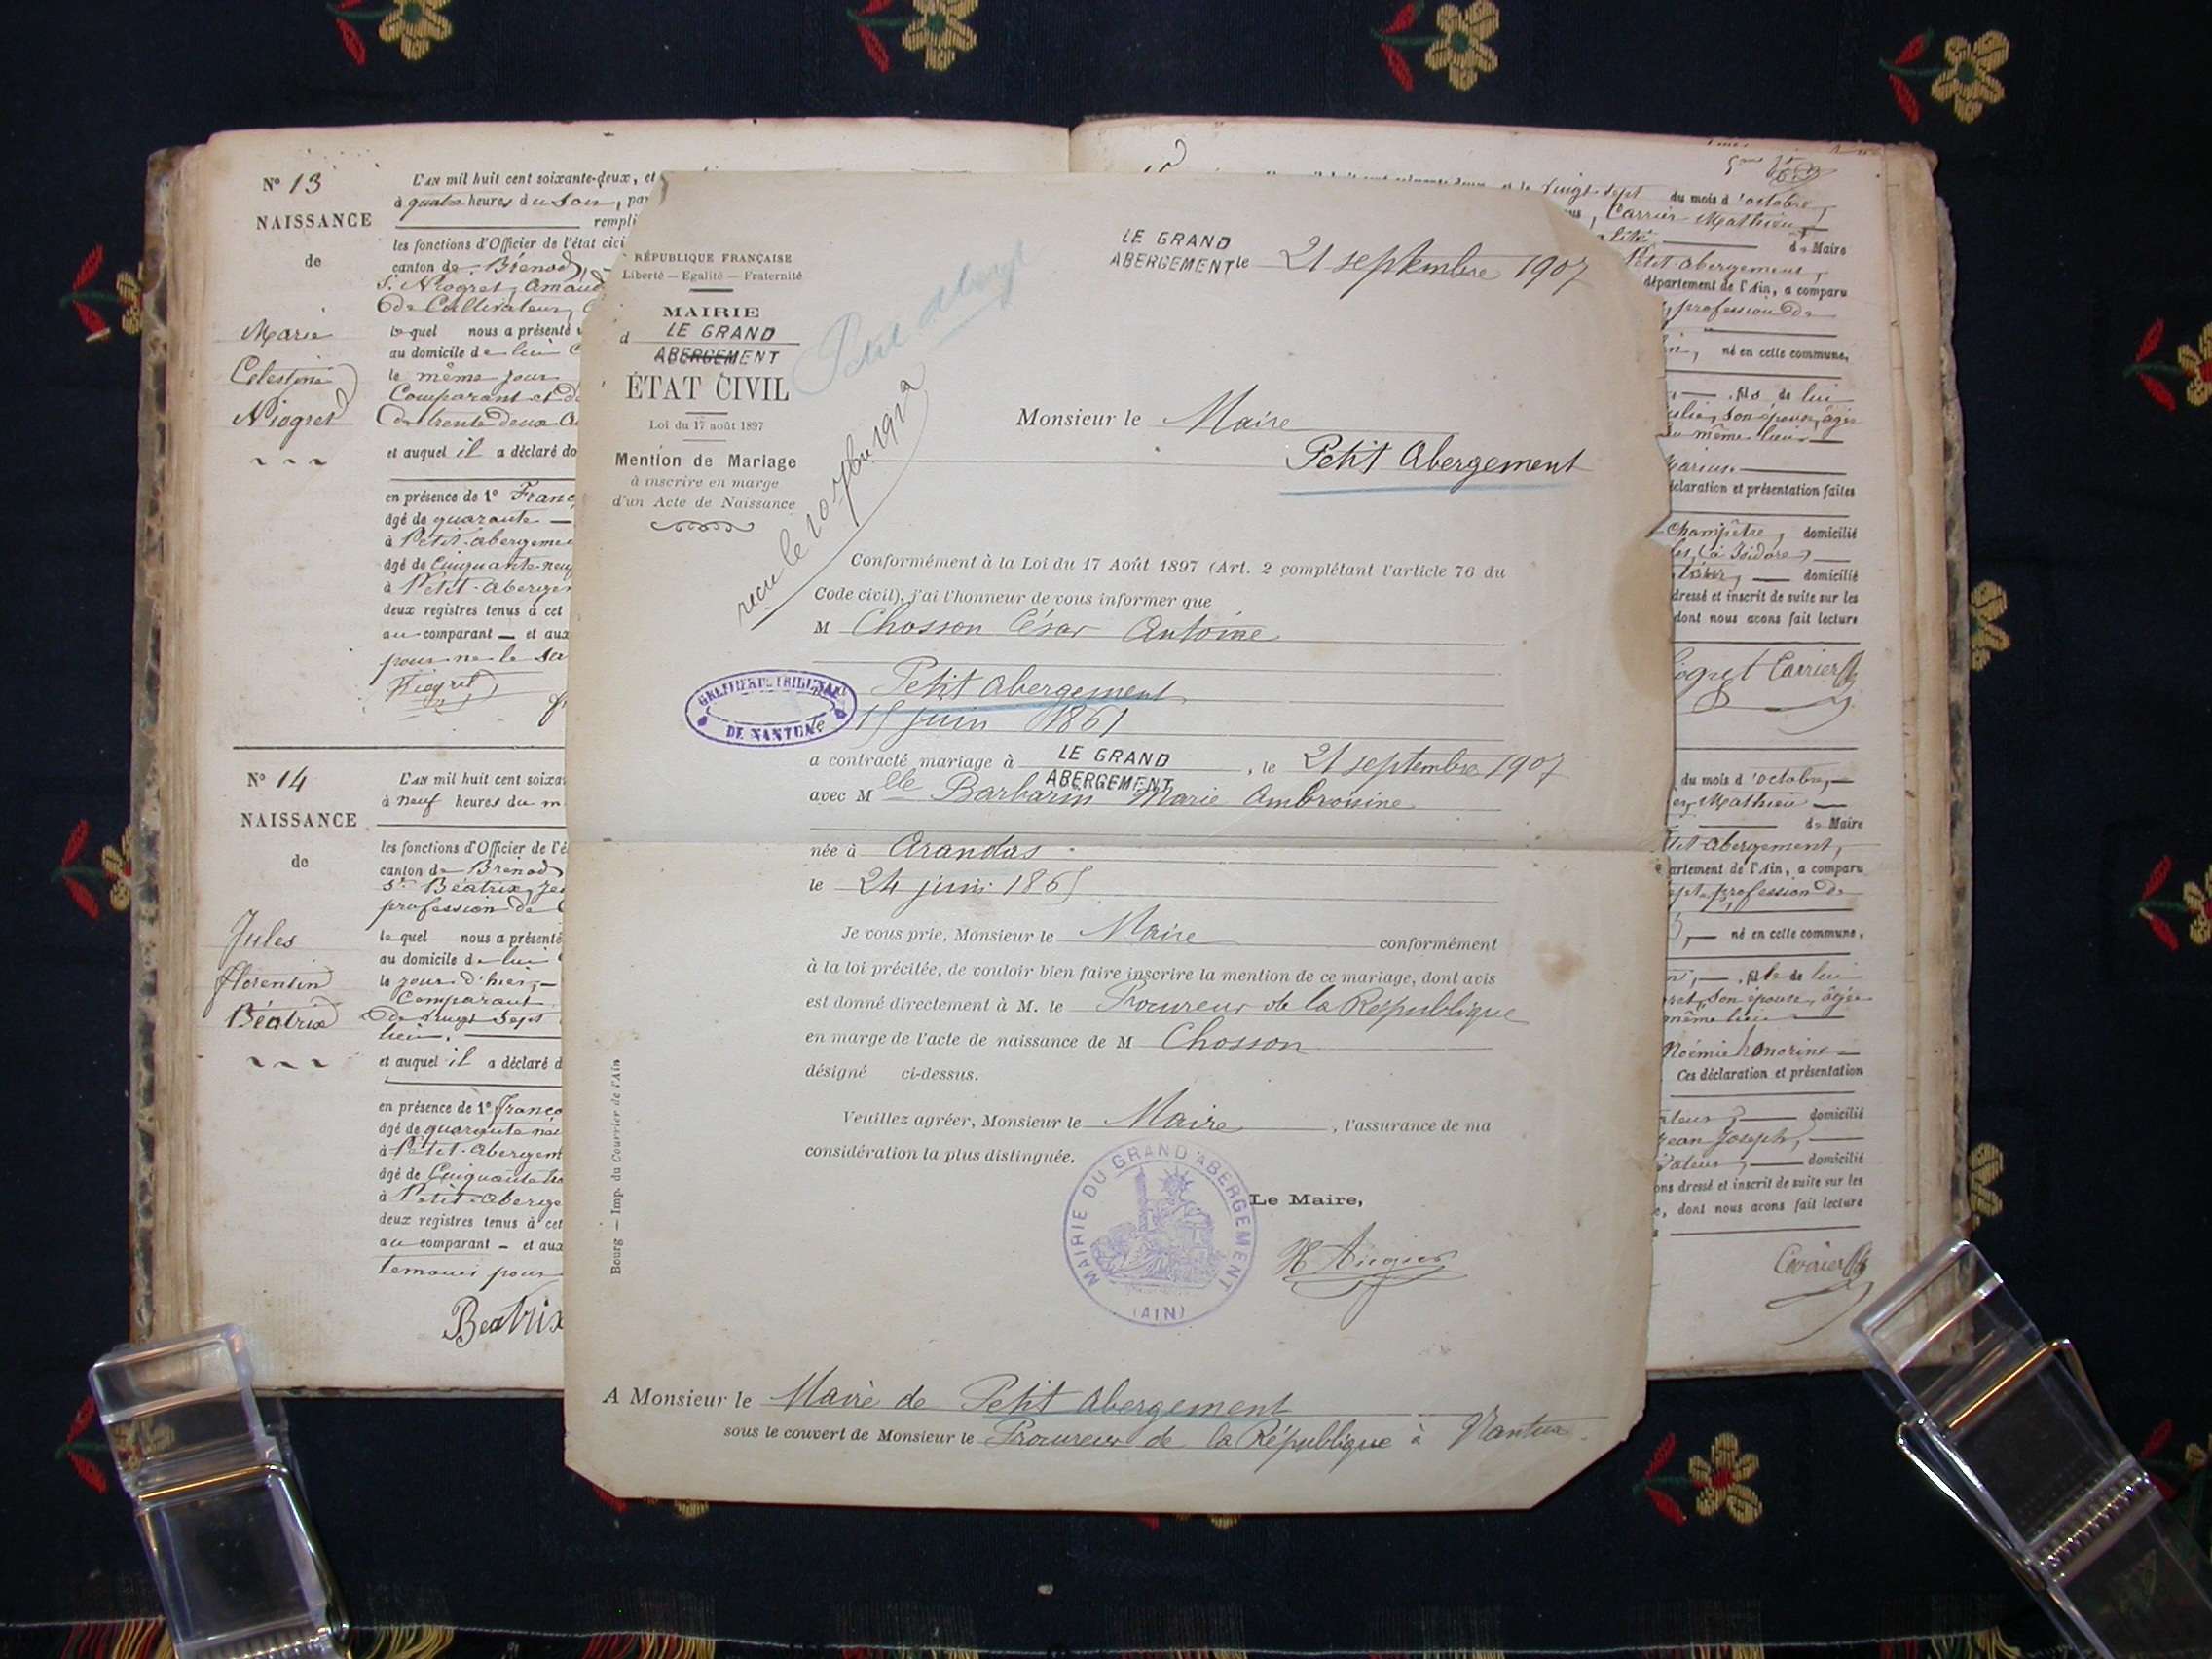 Nº 13
NAISSANCE
de
Marie
Celestine
Niogret
L'AN mil huit cent soixante-deux, et
à quatre heures du Soir, par
rempli
les fonctions d'Officier de l'état civi
canton de Brénod,
S. Niogret, Amand
de Cultivateur,
lequel nous a présenté
au domicile de lui
le même jour
Comparant et de
de trente deux a
et auquel il a déclaré do
en présence de 1º Franç
âgé de quarante
à Petit-abergeme
âgé de Cinquante-neuf
à Petit-aberge
deux registres tenus à cet
au comparant et aux
pour ne le Sa
Niogret
Nº 14
NAISSANCE
de
Jules
florentin
Béatrix
L'AN mil huit cent soixa
à neuf heures du m
les fonctions d'Officier de l'é
canton de Brénod
Sr Béatrix, Je
profession de
lequel nous a présenté
au domicile de lui
le jour d'hier,
Comparant
de vingt Sept
lieu,
et auquel il a déclaré d
en présence de 1º franco
âgé de quarante
à Petit-abergem
âgé de Cinquante
à Petit-aberge
deux registres tenus à cet
au comparant et aux
temoins pour
Beatrix
RÉPUBLIQUE FRANÇAISE
Liberté — Egalité — Fraternité
MAIRIE
d LE GRAND
ABERGEMENT
ÉTAT CIVIL
Loi du 17 août 1897
Mention de Mariage
à inscrire en marge
d'un Acte de Naissance
Petit Aberg
reçu le 10 7bre 1912
LE GRAND
ABERGEMENT le 21 septembre 1907
Monsieur le Maire
Petit Abergement
Conformément à la Loi du 17 Août 1897 (Art. 2 complétant l'article 76 du
Code civil), j'ai l'honneur de vous informer que
M Chosson César Antoine
Petit Abergement
le 15 juin 1861
GREFFIER DU TRIBUNAL
DE NANTUA
a contracté mariage à LE GRAND ABERGEMENT, le 21 septembre 1907
avec Melle Barbarin Marie Ambroisine
née à Arandas
le 24 juin 1865
Je vous prie, Monsieur le Maire conformément
à la loi précitée, de vouloir bien faire inscrire la mention de ce mariage, dont avis
est donné directement à M. le Procureur de la République
en marge de l'acte de naissance de M Chosson
désigné ci-dessus.
Veuillez agréer, Monsieur le Maire, l'assurance de ma
considération la plus distinguée.
MAIRIE DU GRAND ABERGEMENT
(AIN)
Le Maire,
Bourg — Imp. du Courrier de l'Ain
A Monsieur le Maire de Petit Abergement
sous le couvert de Monsieur le Procureur de la République à Nantua.
vingt-sept du mois d'octobre,
Carrier Mathieu
de Maire
Petit-abergement,
département de l'Ain, a comparu
profession de
né en cette commune,
fils de lui
son épouse, âgée
du même lieu
Marius
claration et présentation faites
Champêtre, domicilié
Isidore,
domicilié
dressé et inscrit de suite sur les
dont nous avons fait lecture
Carrier
du mois d'octobre,
Mathieu
de Maire
abergement,
artement de l'Ain, a comparu
profession de
né en cette commune,
fille de lui
son épouse, âgée
même lieu
Noémie Honorine
Ces déclaration et présentation
domicilié
Jean Joseph,
domicilié
ons dressé et inscrit de suite sur les
, dont nous avons fait lecture
Carrier